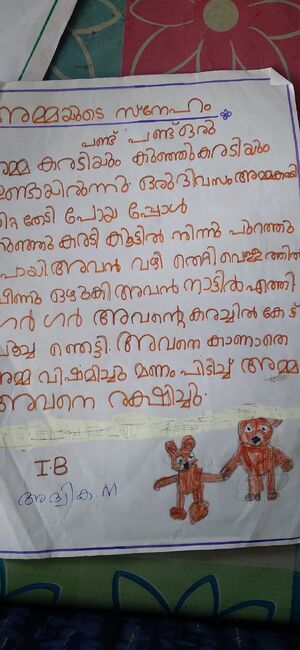 അമ്മയുടെ സ്നേഹം
പണ്ട് പണ്ട് ഒരു
അമ്മ കരടിയും കുഞ്ഞുകരടിയും
ഉണ്ടായിരുന്നു. ഒരു ദിവസം അമ്മകരടി
തേടി പോയ പ്പോൾ
കുഞ്ഞു കരടി കൂട്ടിൽ നിന്ന് പുറത്തു
പോയി. അവൻ വഴി തെറ്റി വെള്ളത്തിൽ
വീണു ഒഴുകി അവൻ നാട്ടിൽ എത്തി.
ഗർ ഗർ അവന്റെ കരച്ചിൽ കേട്ട്
ഞെട്ടി. അവനെ കാണാതെ
അമ്മ വിഷമിച്ചു മണം പിടിച്ച് അമ്മ
അവനെ രക്ഷിച്ചു.
I.B
അദ്വിക. M